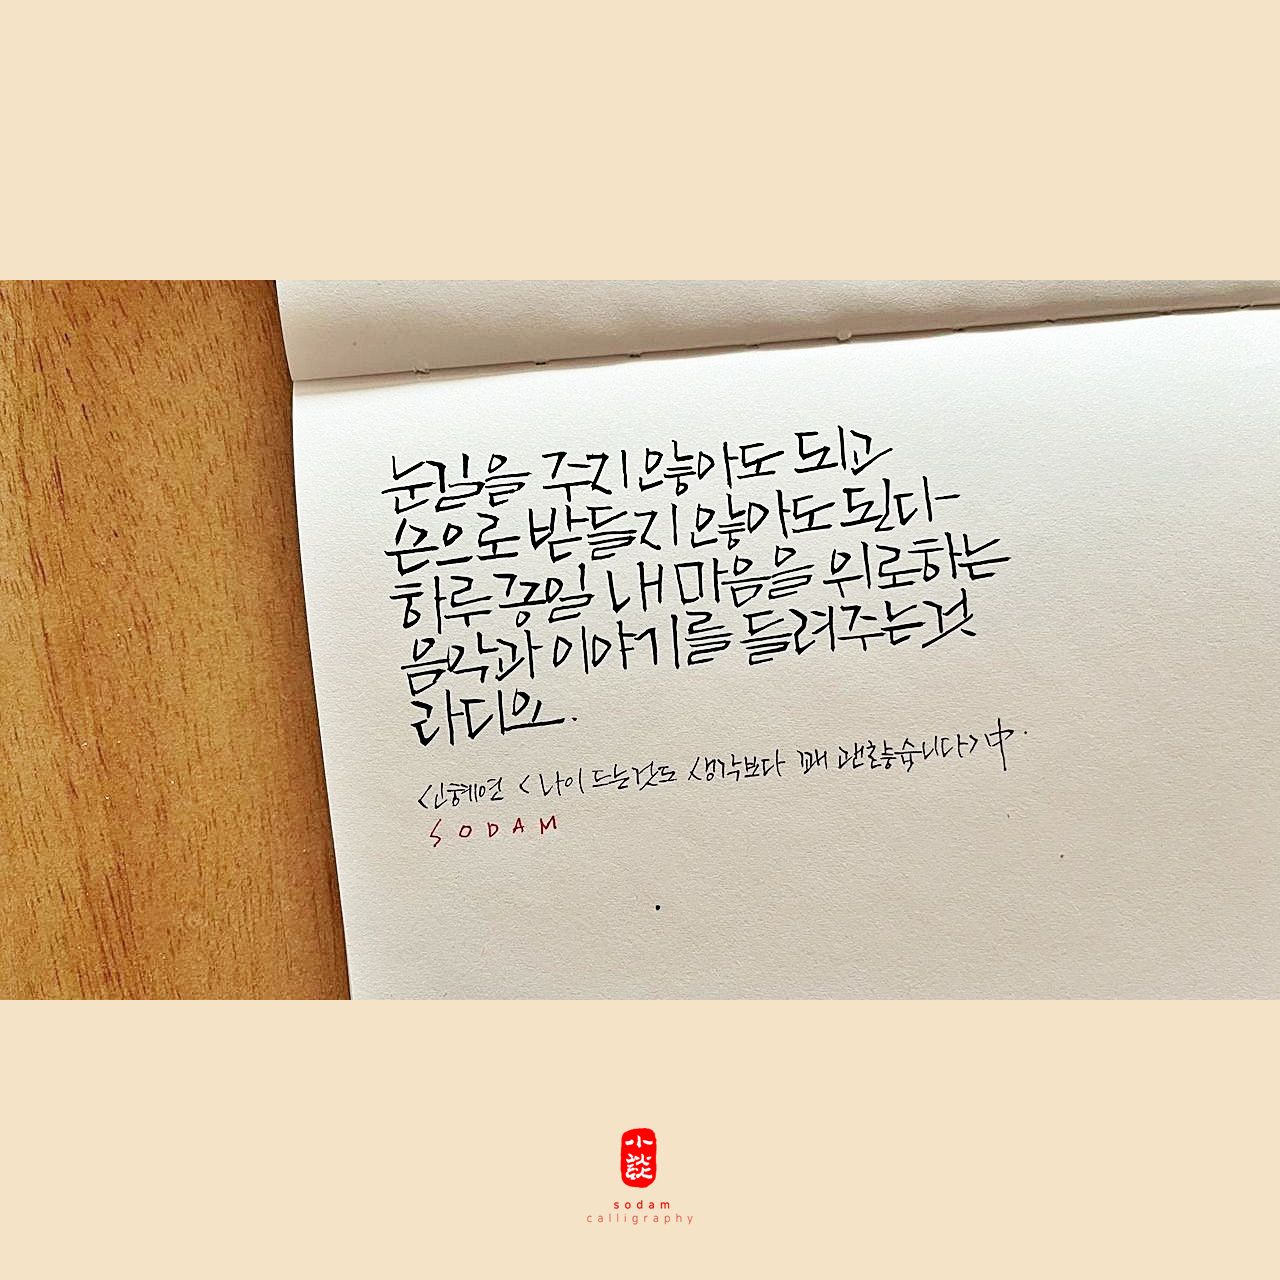 눈길을 주지 않아도 되고
손으로 받들지 않아도 된다
하루종일 내 마음을 위로하는
음악과 이야기를 들려주는것
라디오.
신혜연 <나이 드는것도 생각보다 꽤 괜찮습니다>中.
SODAM
小談
sodam
calligraphy